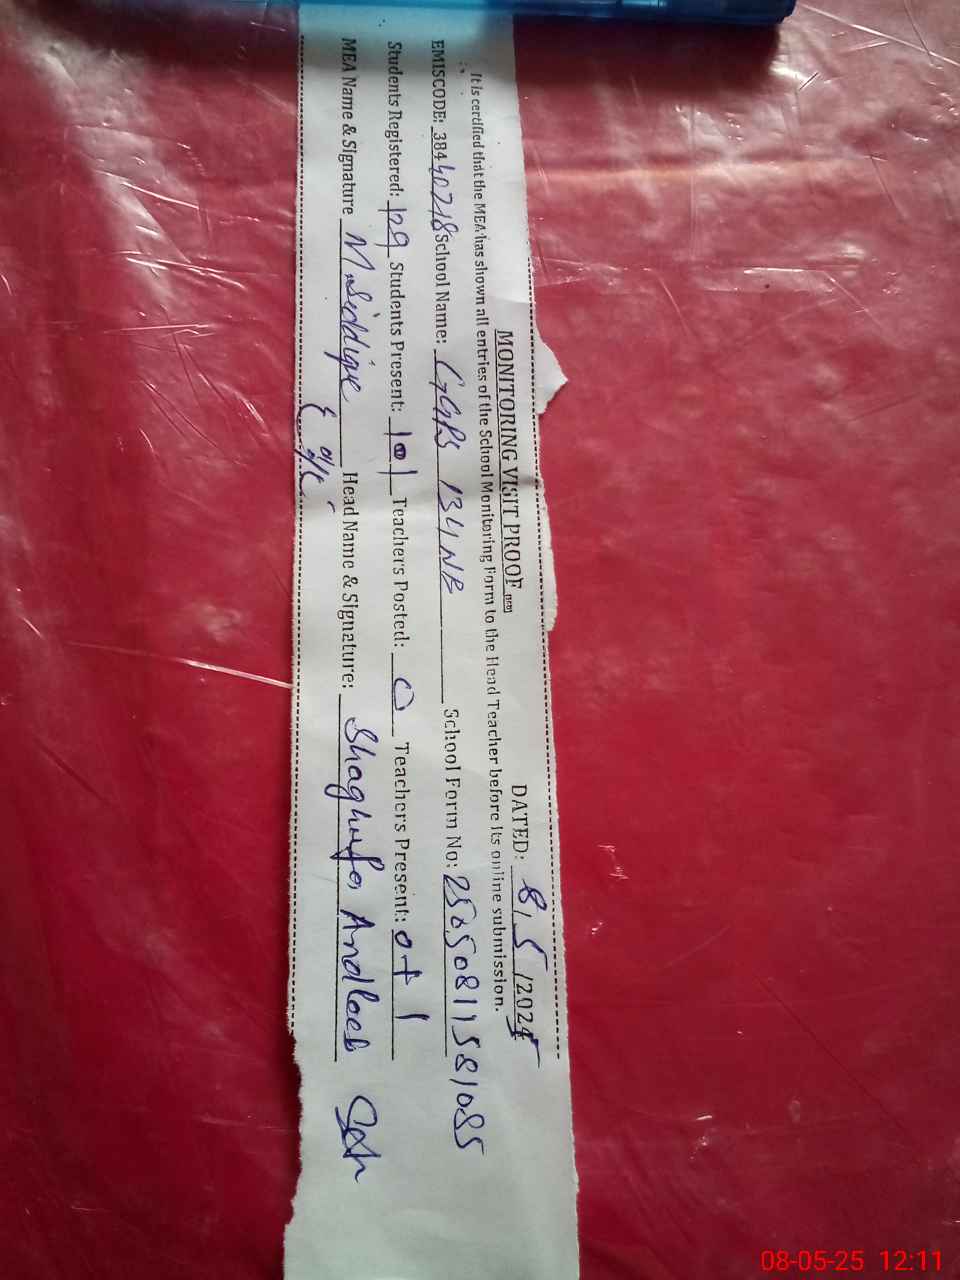 MONITORING VISIT PROOF DATED: 8, 5 /2025
It is certified that the MEA has shown all entries of the School Monitoring Form to the Head Teacher before its online submission.
EMISCODE: 38440218 School Name: GGPS 134 NB School Form No: 25050811581085
Students Registered: 129 Students Present: 101 Teachers Posted: 0 Teachers Present: 0+1
MEA Name & Signature M. Siddique Head Name & Signature: Shaghufa Andleeb
08-05-25 12:11